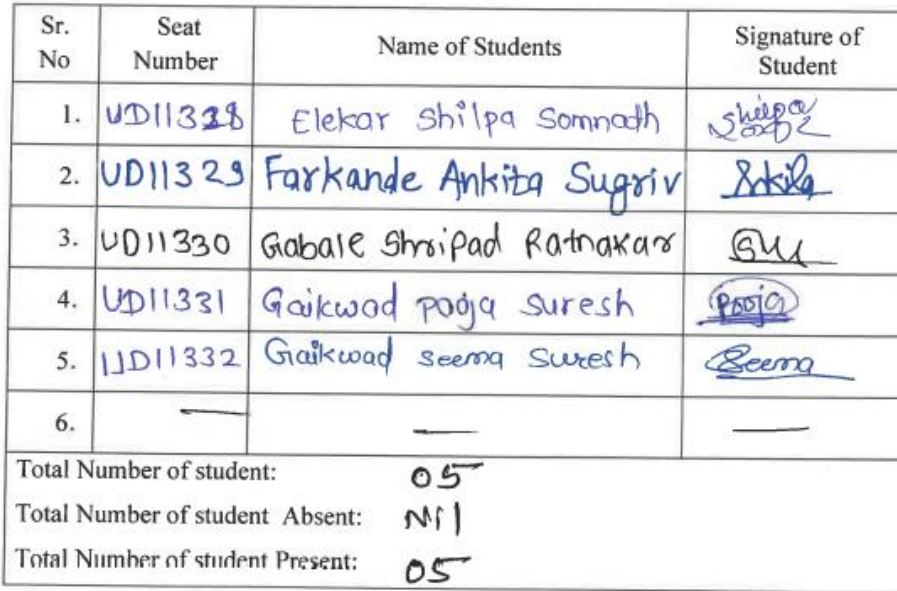 Sr. No Seat Number Name of Students Signature of Student
1. UD11328 Elekar Shilpa Somnath Shilpa
2. UD11329 Farkande Ankita Sugriv
3. UD11330 Gabale Shripad Ratnakar
4. UD11331 Gaikwad pooja suresh Pooja
5. UD11332 Gaikwad seema suresh Seema
6. — — —
Total Number of student: 05
Total Number of student Absent: Nil
Total Number of student Present: 05